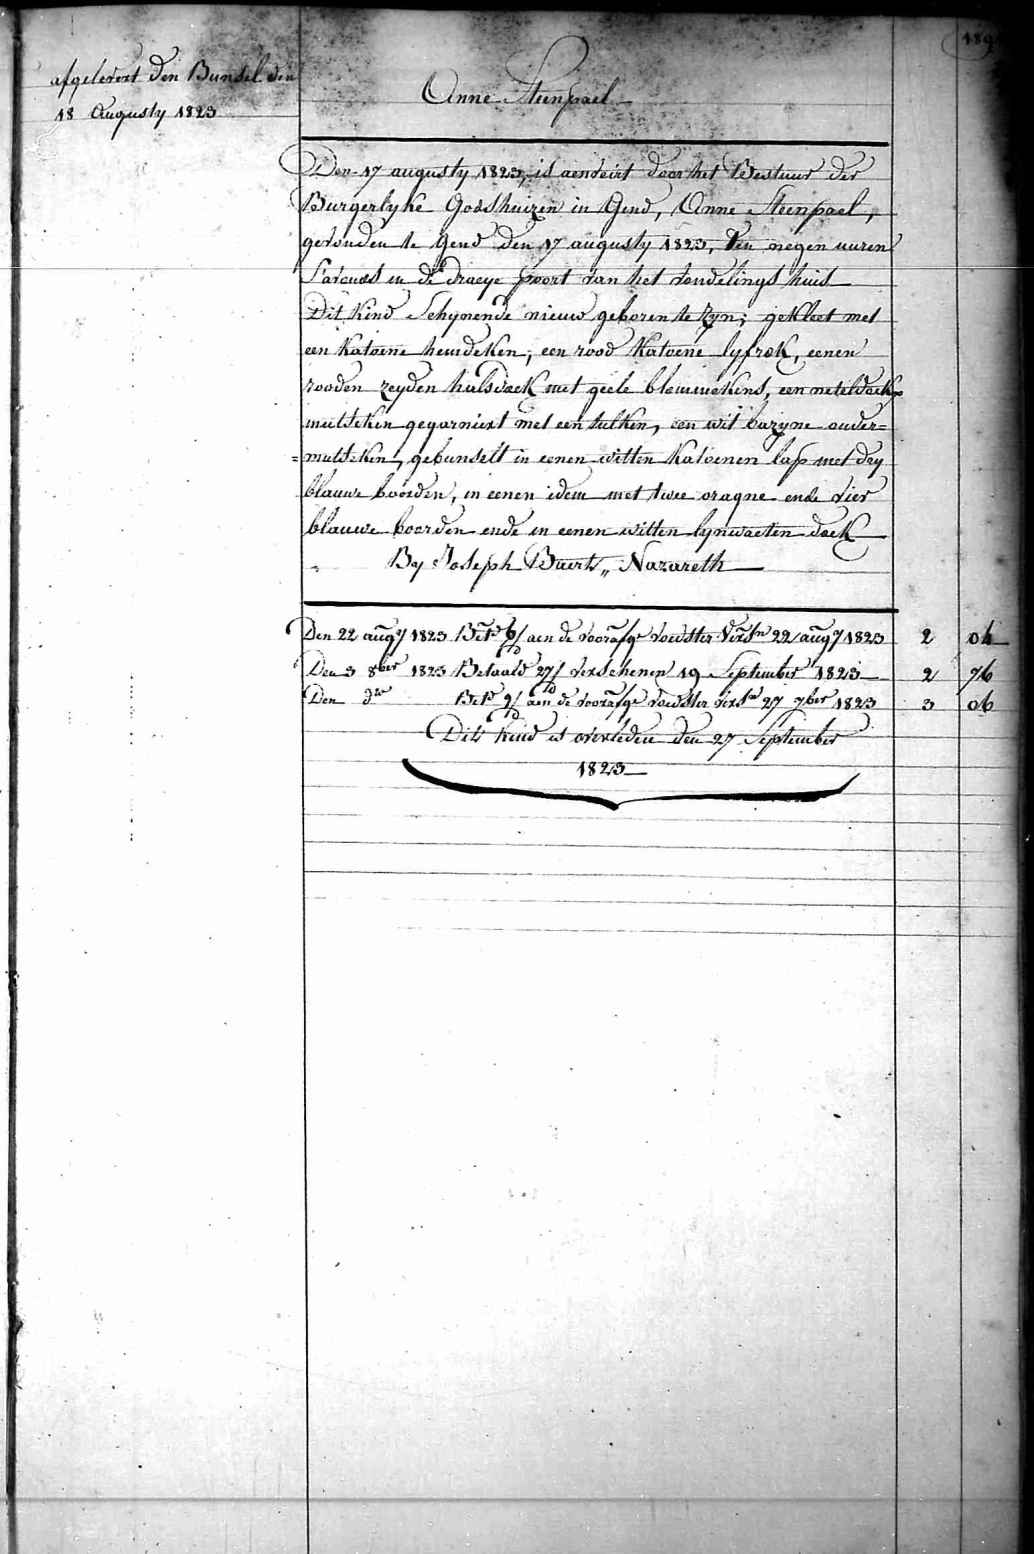 afgelevert den Bunsel den
18 Augusty 1823
Anne Steenpael
Den 17 augusty 1823, is aenveirt door het Bestuur der
Burgerlyke Godshuizen in Gend, Anne Steenpael,
gevonden te Gend den 17 augusty 1823, ten negen uuren
s'avonds in de draeye poort van het vondelings huis
Dit kind Schynende nieuw geboren te zyn; gekleet met
een katoene hemdeken, een rood katoene lyfrok, eenen
rooden zeyden halsdoek met geele blommekens, een neteldoek
mutseken gegarniert met een tulken, een wit bazyne onder=
=mutseken, gebunselt in eenen witten katoenen lap met dry
blauwe boorden, in eenen idem met twee oragne ende vier
blauwe boorden ende in eenen witten lynwaeten doek
By Joseph Baert, Nazareth
Den 22 augy 1823 Bete 6/ aen de voorafge voedster Versn 22 augy 1823 2 04
Den 3 8ber 1823 Betaald 27/ verschenen 19 September 1823 2 76
Den do Bete 9/ aen de voorafge voedster versn 27 7ber 1823 3 06
Dit kind is overleden den 27 September
1823